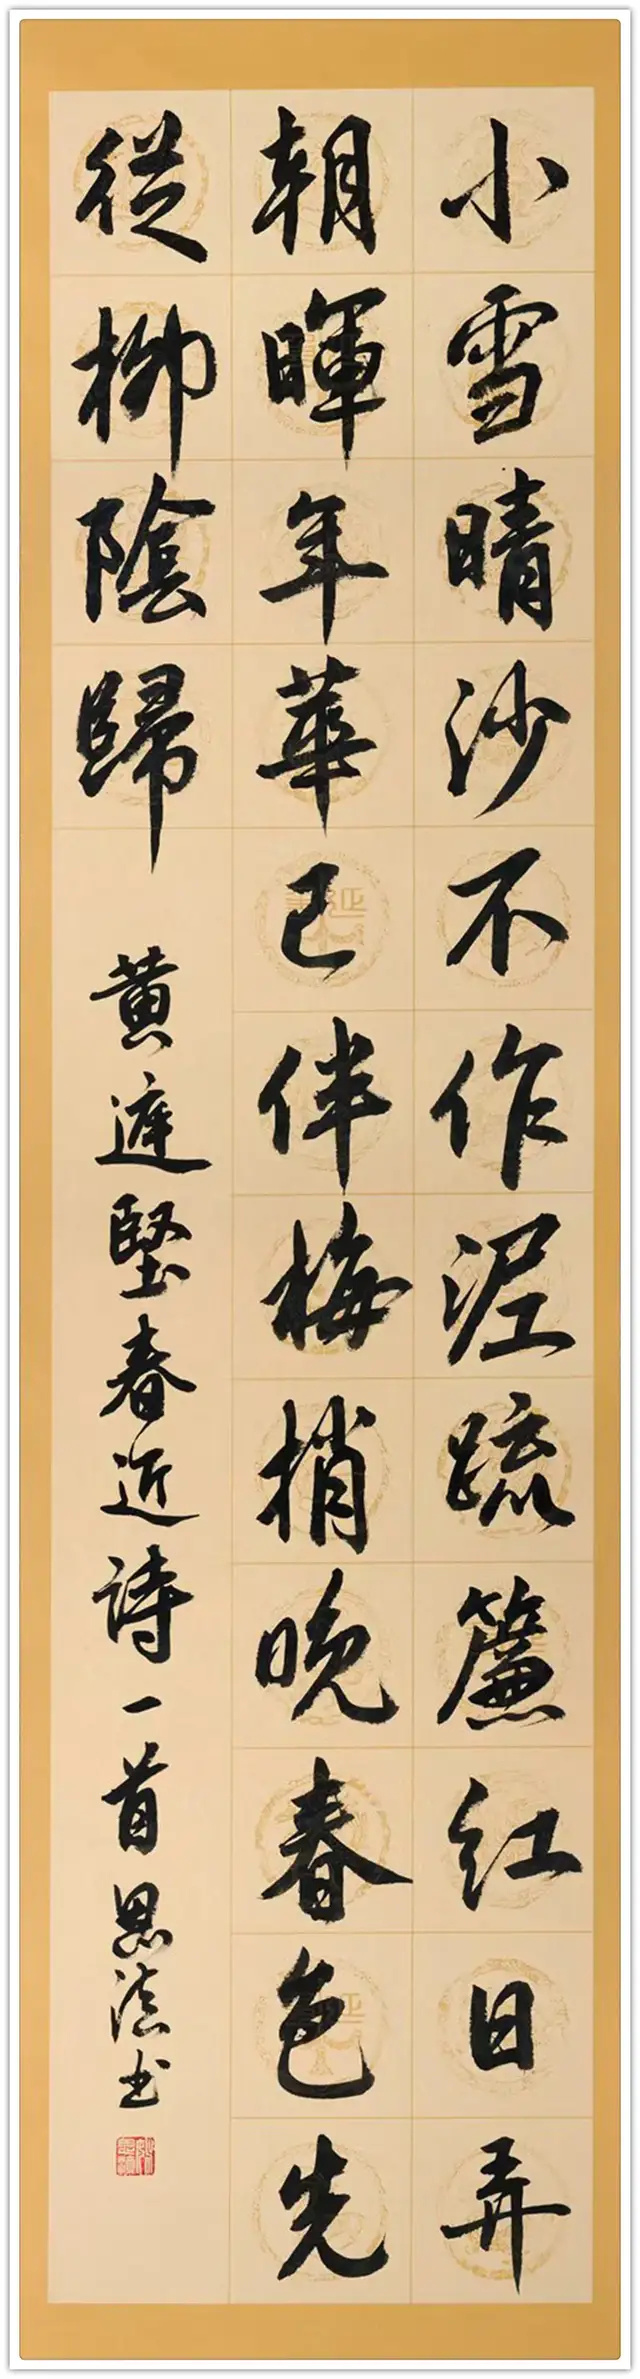 小雪晴沙不作泥疏簾红日弄
朝暉年華已伴梅梢晚春色先
從柳陰歸
黄庭堅春近诗一首思滇书